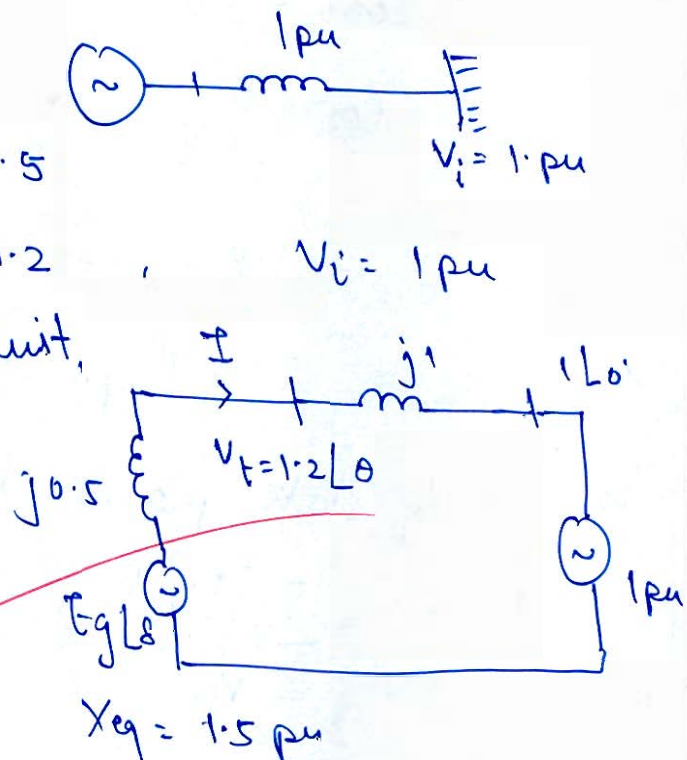 1 pu
~
Vi = 1. pu
.5
.2 , Vi = 1 pu
uit,
I j1 1∠0°
Vt = 1.2∠θ
j0.5
~
~
1 pu
Eg∠δ
Xeq = 1.5 pu